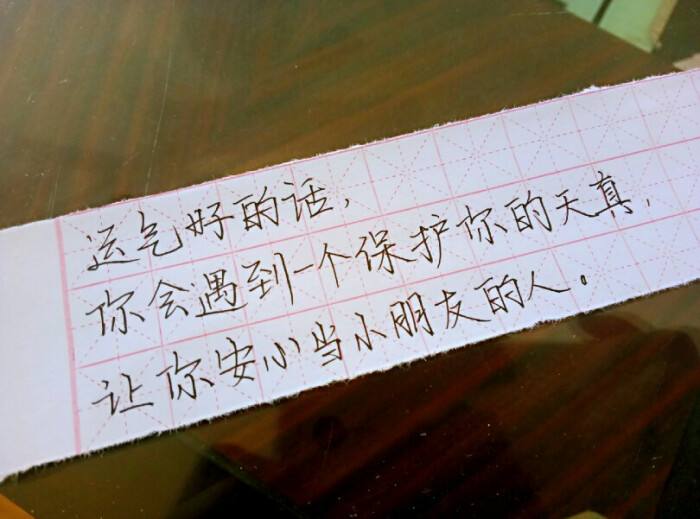 运气好的话，
你会遇到一个保护你的天真，
让你安心当小朋友的人。